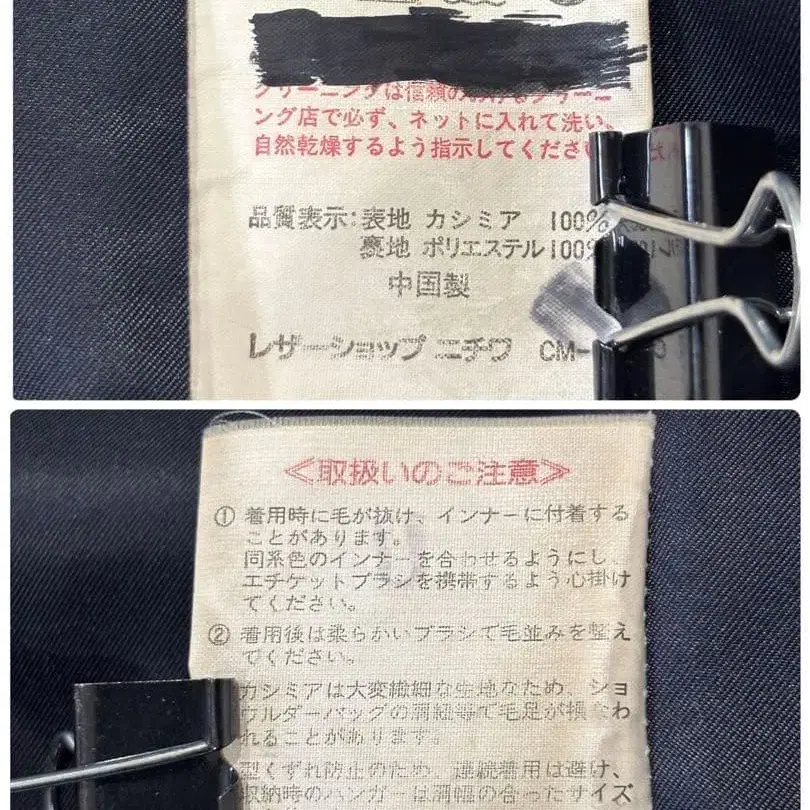 ング店で必ず、ネットに入れて洗い、
自然乾燥するよう指示してくださ
品質表示:表地 カシミア 100%
裏地 ポリエステル100%
中国製
レザーショップ ニチワ CM-
≪取扱いのご注意≫
① 着用時に毛が抜け、インナーに付着する
ことがあります。
同系色のインナーを合わせるようにし、
エチケットブラシを携帯するよう心掛け
てください。
② 着用後は柔らかいブラシで毛並みを整え
てください。
カシミアは大変繊細な生地なため、ショ
ルダーバッグの肩紐等で毛足が損なわ
れることがあります。
型くずれ防止のため、連続着用は避け、
収納時のハンガーは肩幅の合ったサイズ